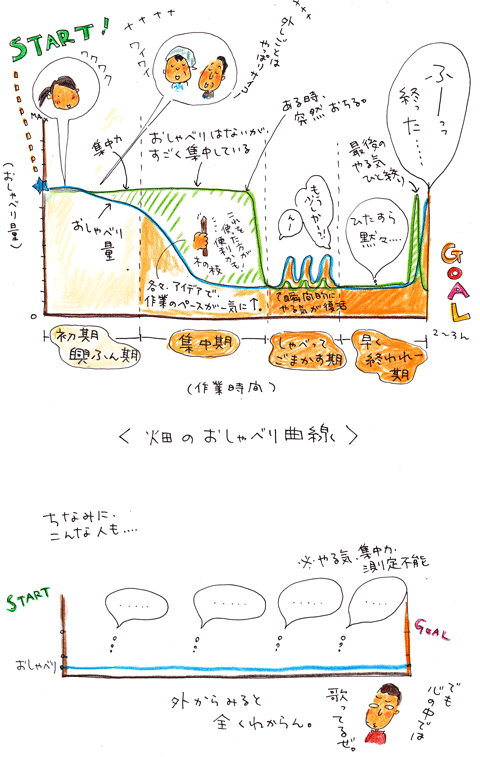 START!
ワクワク
ワイワイ
外しごとは
やっぱり
MAX
(おしゃべり量)
0
集中力
おしゃべりはないが、
すごく集中している
ある時、
突然おちる。
ふーっっ
終った……
最後の
やる気
ひと絞り
おしゃべり
量
これを
木の枝
各々、アイデアで、
作業のペースが一気に↑。
もう少しかー?!
んー
瞬間的に
やる気が復活
ひたすら
黙々…
GOAL
初期
興ふん期
集中期
しゃべって
ごまかす期
早く
終われー
期
2〜3h
(作業時間)
<畑のおしゃべり曲線>
ちなみに、
こんな人も….
※やる気・集中力
測定不能
START
……
……
……
……
GOAL
おしゃべり
外からみると
全くわからん。
でも
心の中では
歌ってるぜ。